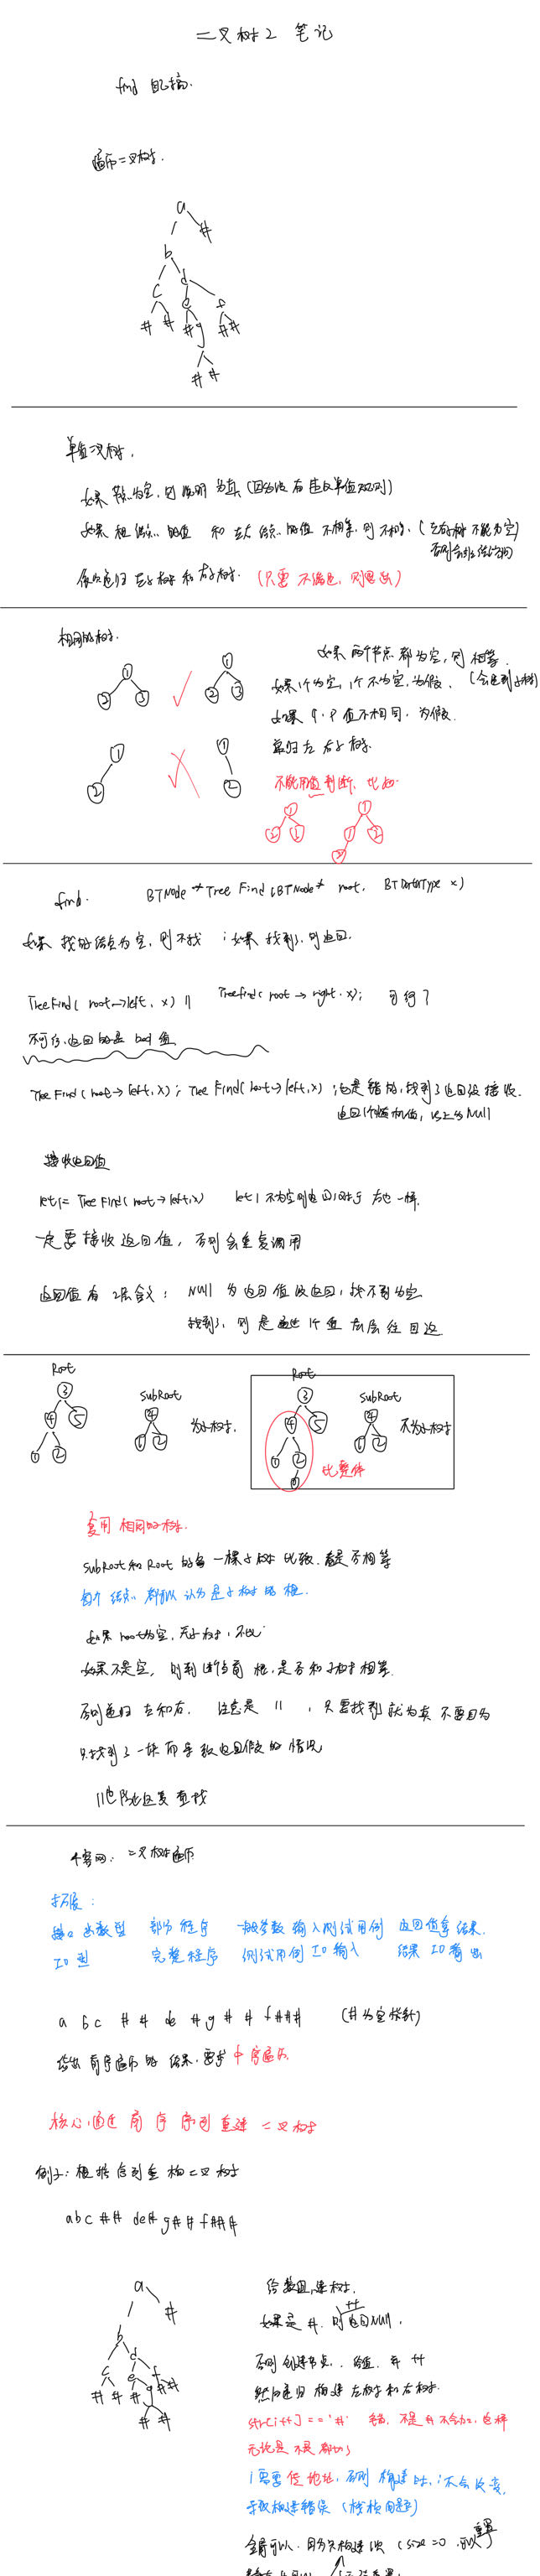 二叉树2 笔记
find 自己搞.
遍历二叉树.
a
#
b
c d
e f
# # # g # #
# #
单值二叉树.
如果 为空, 则 说明 为真 (因为没有违反单值规则)
如果 根结点的值 和 左右结点的值 不相等, 则不相等. (左右子树 不能为空)
依次递归 左子树 和 右子树. (只要 不 )
相同的树.
如果 两个节点 都为空, 则 相等.
如果1个为空, 1个 不为空, 为假.
如果 值不相同, 为假.
递归左 右子树.
不能用值判断. 比如
find. BTNode* TreeFind(BTNode* root, BTDataType x)
如果 找的结点为空, 则不找 ; 如果 找到了, 则返回.
TreeFind(root->left, x) || TreeFind(root->right, x); 可行?
不可行, 返回的是 bool 值
TreeFind(root->left, x); TreeFind(root->left, x) ;也是错的, 找到了返回没接收.
返回1个随机值, 以上为Null
接收返回值
ret1 = TreeFind(root->left, x) ret1 不为空则返回 右也一样.
一定要接收返回值, 否则会重复调用
返回值有 2层含义: Null 为返回值被返回, 找不到为空
找到了, 则是通过 1个值 层层往回返
Root
3
4 5
1 2
SubRoot
4
1 2
为子树.
Root
3
4 5
1 2
0
SubRoot
4
1 2
不为子树
比整体
复用 相同的树.
SubRoot 和 Root 的每一棵子树 比较. 看是否相等
每个 结点 都可以 认为是子树的根.
如果 root为空, 无子树,
如果不是空, 则判断当前 根, 是否和子树相等.
否则递归 左和右. 注意是 || , 只要找到 就为真 不要因为
只找到了一块 而导致返回假的情况
牛客网: 二叉树遍历
拓展:
接口函数型 部分程序 一般参数输入测试用例 返回值拿结果.
IO型 完整程序 测试用例 IO输入 结果 IO输出
a b c # # d e # g # # f### (#为空指针)
给出 前序遍历的 结果, 要求 中序遍历.
核心:通过 前序 序列 重建 二叉树
例子: 根据 序列重构二叉树
abc## de# g## f###
a
#
b
c d
# # e f
# g # #
# #
给数组,建树.
如果是 #, 则 返回Null, ++
否则 创建节点, 给值, 并 ++
然后递归 构建 左树和右树.
str[i++] == '#' 错, 不是
无论是 不是 都加了
i 需要 传地址, 否则 构建时, i不会改变,
导致构建错误 (栈帧问题)